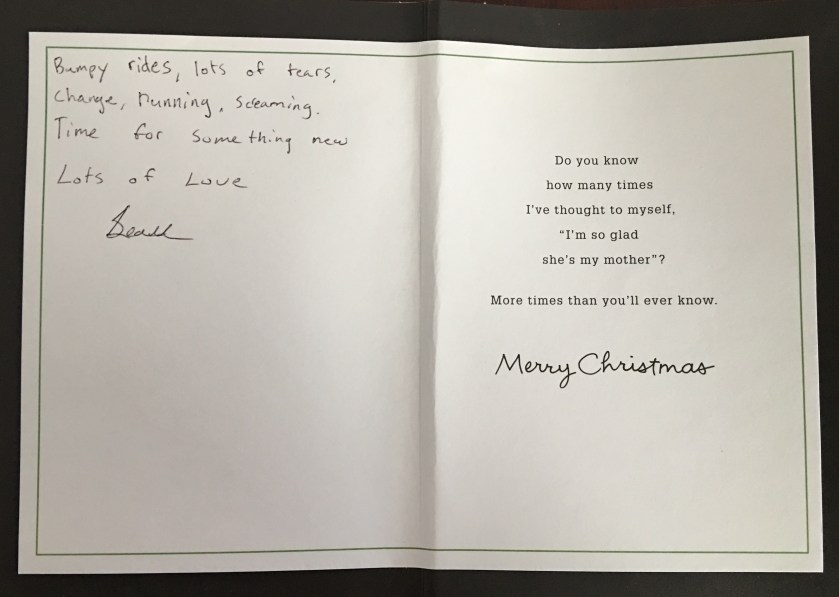 Bumpy rides, lots of tears,
Change, Running, Screaming.
Time for something new
Lots of Love
Do you know
how many times
I've thought to myself,
"I'm so glad
she's my mother"?
More times than you'll ever know.
Merry Christmas